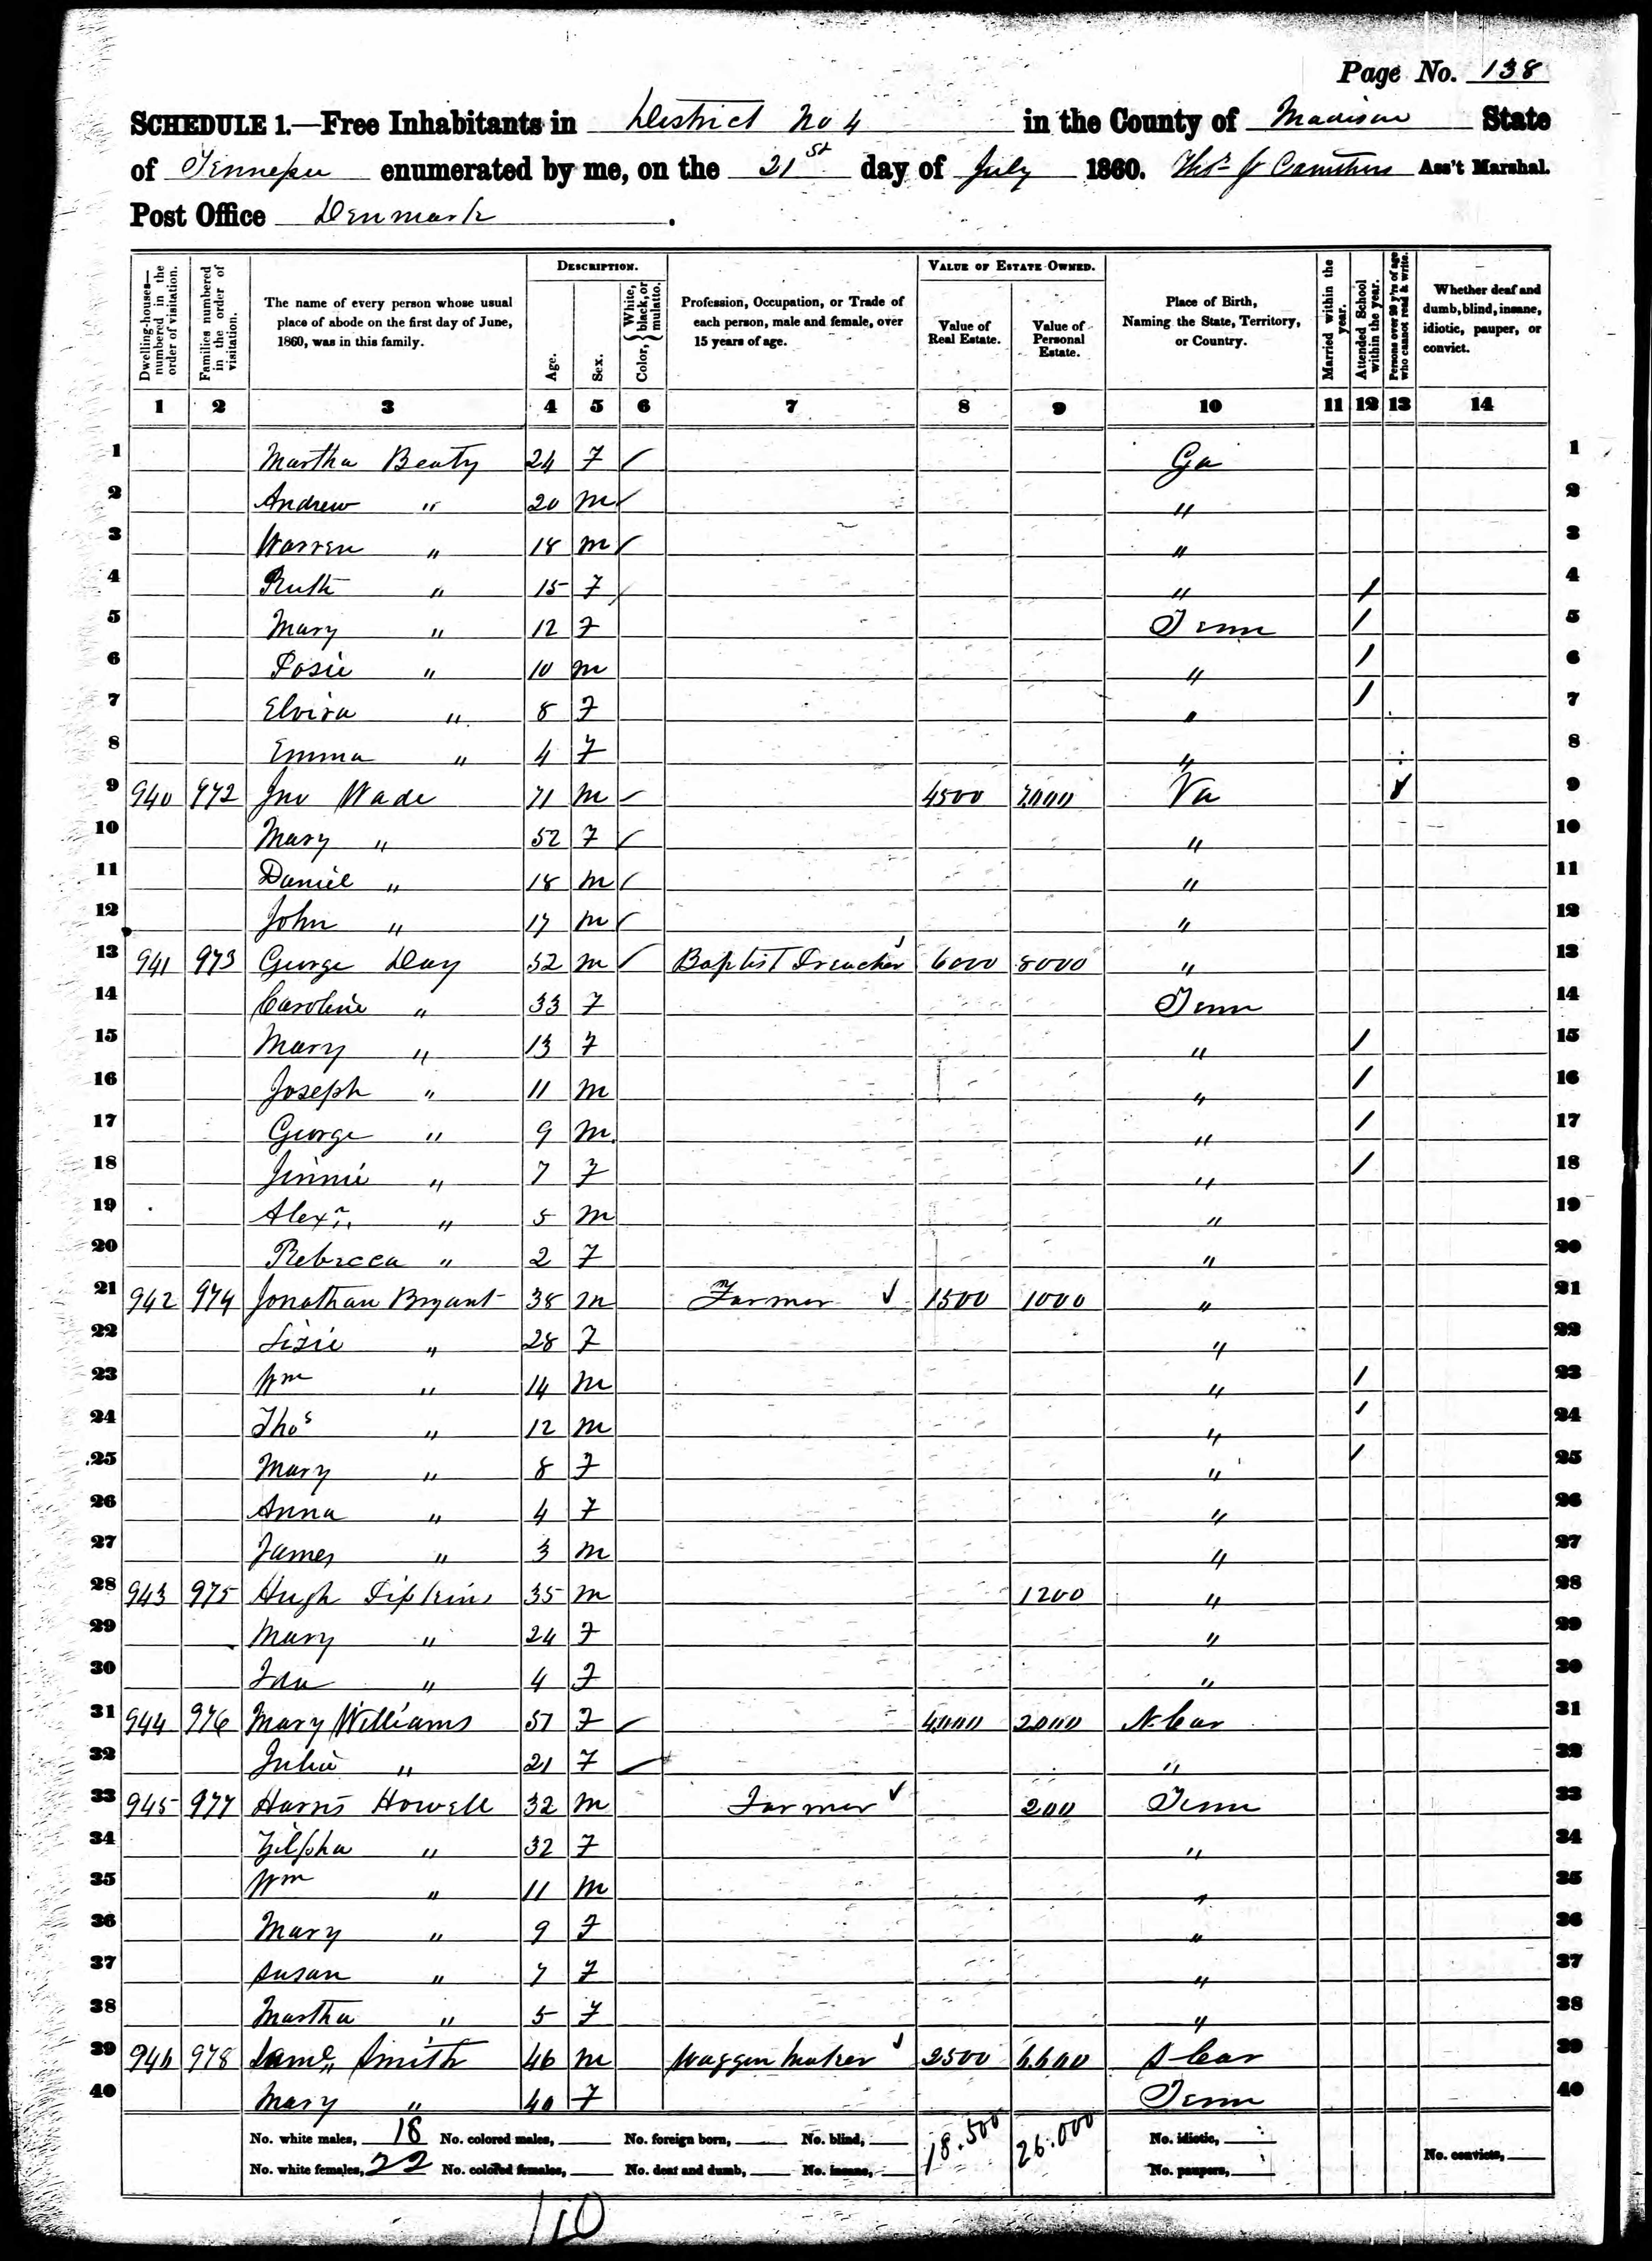 Page No. 138
SCHEDULE 1.—Free Inhabitants in District No 4 in the County of Madison State
of Tennessee enumerated by me, on the 21st day of July 1860. Thos J Ass't Marshal.
Post Office Denmark.
DESCRIPTION. VALUE OF ESTATE OWNED.
Dwelling-houses—numbered in the order of visitation. Families numbered in the order of visitation. The name of every person whose usual place of abode on the first day of June, 1860, was in this family. Age. Sex. Color, White, black, or mulatto. Profession, Occupation, or Trade of each person, male and female, over 15 years of age. Value of Real Estate. Value of Personal Estate. Place of Birth, Naming the State, Territory, or Country. Married within the year. Attended School within the year. Persons over 20 y'rs of age who cannot read & write. Whether deaf and dumb, blind, insane, idiotic, pauper, or convict.
1 2 3 4 5 6 7 8 9 10 11 12 13 14
1 Martha Beaty 24 F ✓ Ga 1
2 Andrew " 20 m ✓ " 2
3 Warren " 18 m ✓ " 3
4 Ruth " 15 F / " / 4
5 Mary " 12 F Tenn / 5
6 Posie " 10 m " / 6
7 Elvira " 8 F " / 7
8 Emma " 4 F " 8
9 940 972 Jno Wade 71 m ✓ 4500 7000 Va ✓ 9
10 Mary " 52 F ✓ " 10
11 Daniel " 18 m ✓ " 11
12 John " 17 m ✓ " 12
13 941 973 George Day 52 m ✓ Baptist Preacher ✓ 6000 8000 " 13
14 Caroline " 33 F Tenn 14
15 Mary " 13 F " / 15
16 Joseph " 11 m " / 16
17 George " 9 m " / 17
18 Jinnie " 7 F " / 18
19 Alexr " 5 m " 19
20 Rebecca " 2 F " 20
21 942 974 Jonathan Bryant 38 m Farmer ✓ 1500 1000 " 21
22 Lizie " 28 F " 22
23 Wm " 14 m " / 23
24 Thos " 12 m " / 24
25 Mary " 8 F " / 25
26 Anna " 4 F " 26
27 James " 3 m " 27
28 943 975 Hugh Pipkins 35 m 1200 " 28
29 Mary " 24 F " 29
30 Ida " 4 F " 30
31 944 976 Mary Williams 57 F ✓ 4000 2000 N. Car 31
32 Julia " 21 F ✓ " 32
33 945 977 Harris Howell 32 m Farmer ✓ 200 Tenn 33
34 Zilpha " 32 F " 34
35 Wm " 11 m " 35
36 Mary " 9 F " 36
37 Susan " 7 F " 37
38 Martha " 5 F " 38
39 946 978 Saml Smith 46 m Waggon maker ✓ 2500 6600 S Car 39
40 Mary " 40 F Tenn 40
No. white males, 18 No. colored males, No. foreign born, No. blind, 18.500 26.000 No. idiotic,
No. white females, 22 No. colored females, No. deaf and dumb, No. insane, No. paupers, No. convicts,
110